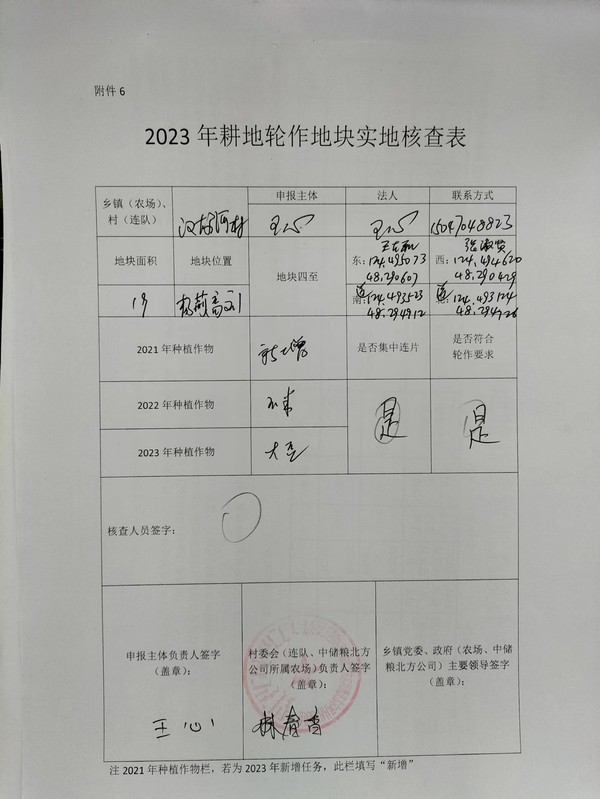 附件 6
2023 年耕地轮作地块实地核查表
乡镇（农场）、
村（连队）
申报主体
法人
联系方式
王心
王心
15047048823
地块面积
地块位置
地块四至
东：124.495073
48.290607
西：124.494620
48.290429
19
南：124.493523
48.294912
124.493124
2021 年种植作物
新增
是否集中连片
是否符合
轮作要求
2022 年种植作物
玉米
是
是
2023 年种植作物
大豆
核查人员签字：
申报主体负责人签字
（盖章）：
王心
村委会（连队、中储粮北方
公司所属农场)负责人签字
（盖章）：
乡镇党委、政府（农场、中储
粮北方公司）主要领导签字
（盖章）：
注 2021 年种植作物栏，若为 2023 年新增任务，此栏填写“新增”